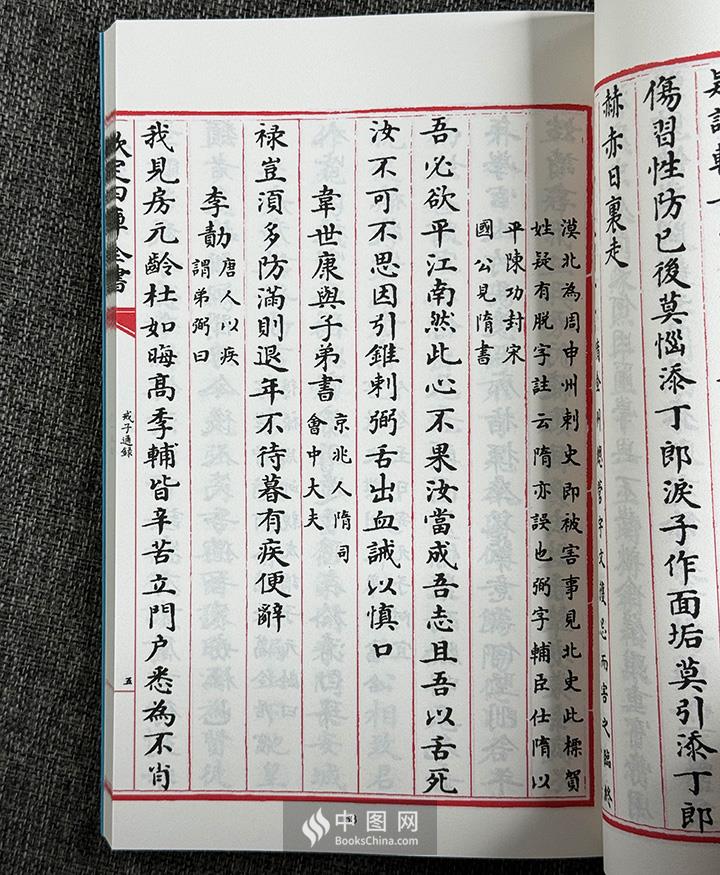 傷習性防已後莫惱添丁郎淚子作面垢莫引添丁郎
赫赤日裏走
金州總管宇文護忌而害之臨終
漠北為周申州刺史即被害事見北史此標賀
姓疑有脫字註云隋亦誤也弼字輔臣仕隋以
平陳功封宋
國公見隋書
吾必欲平江南然此心不果汝當成吾志且吾以舌死
汝不可不思因引錐刺弼舌出血誡以慎口
韋世康與子弟書
京兆人隋司
會中大夫
禄豈須多防滿則退年不待暮有疾便辭
李勣
唐人以疾
謂弟弼曰
我見房元齡杜如晦高季輔皆辛苦立門户悉為不肖
欽定四庫全書
戒子通錄
五
中图网
BooksChina.com